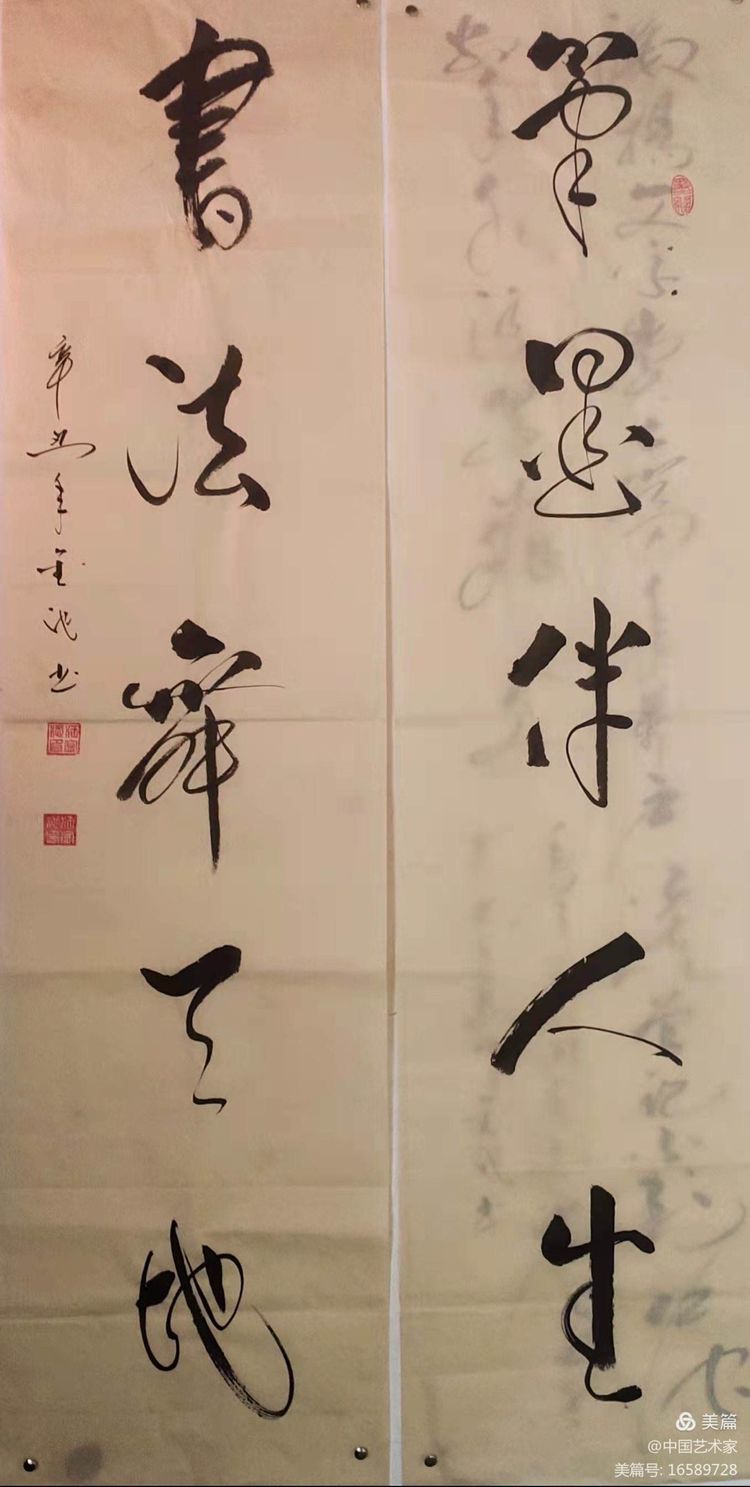 笔墨伴人生
書法舞天地
辛丑年金池书
美篇
@中国艺术家
美篇号: 16589728